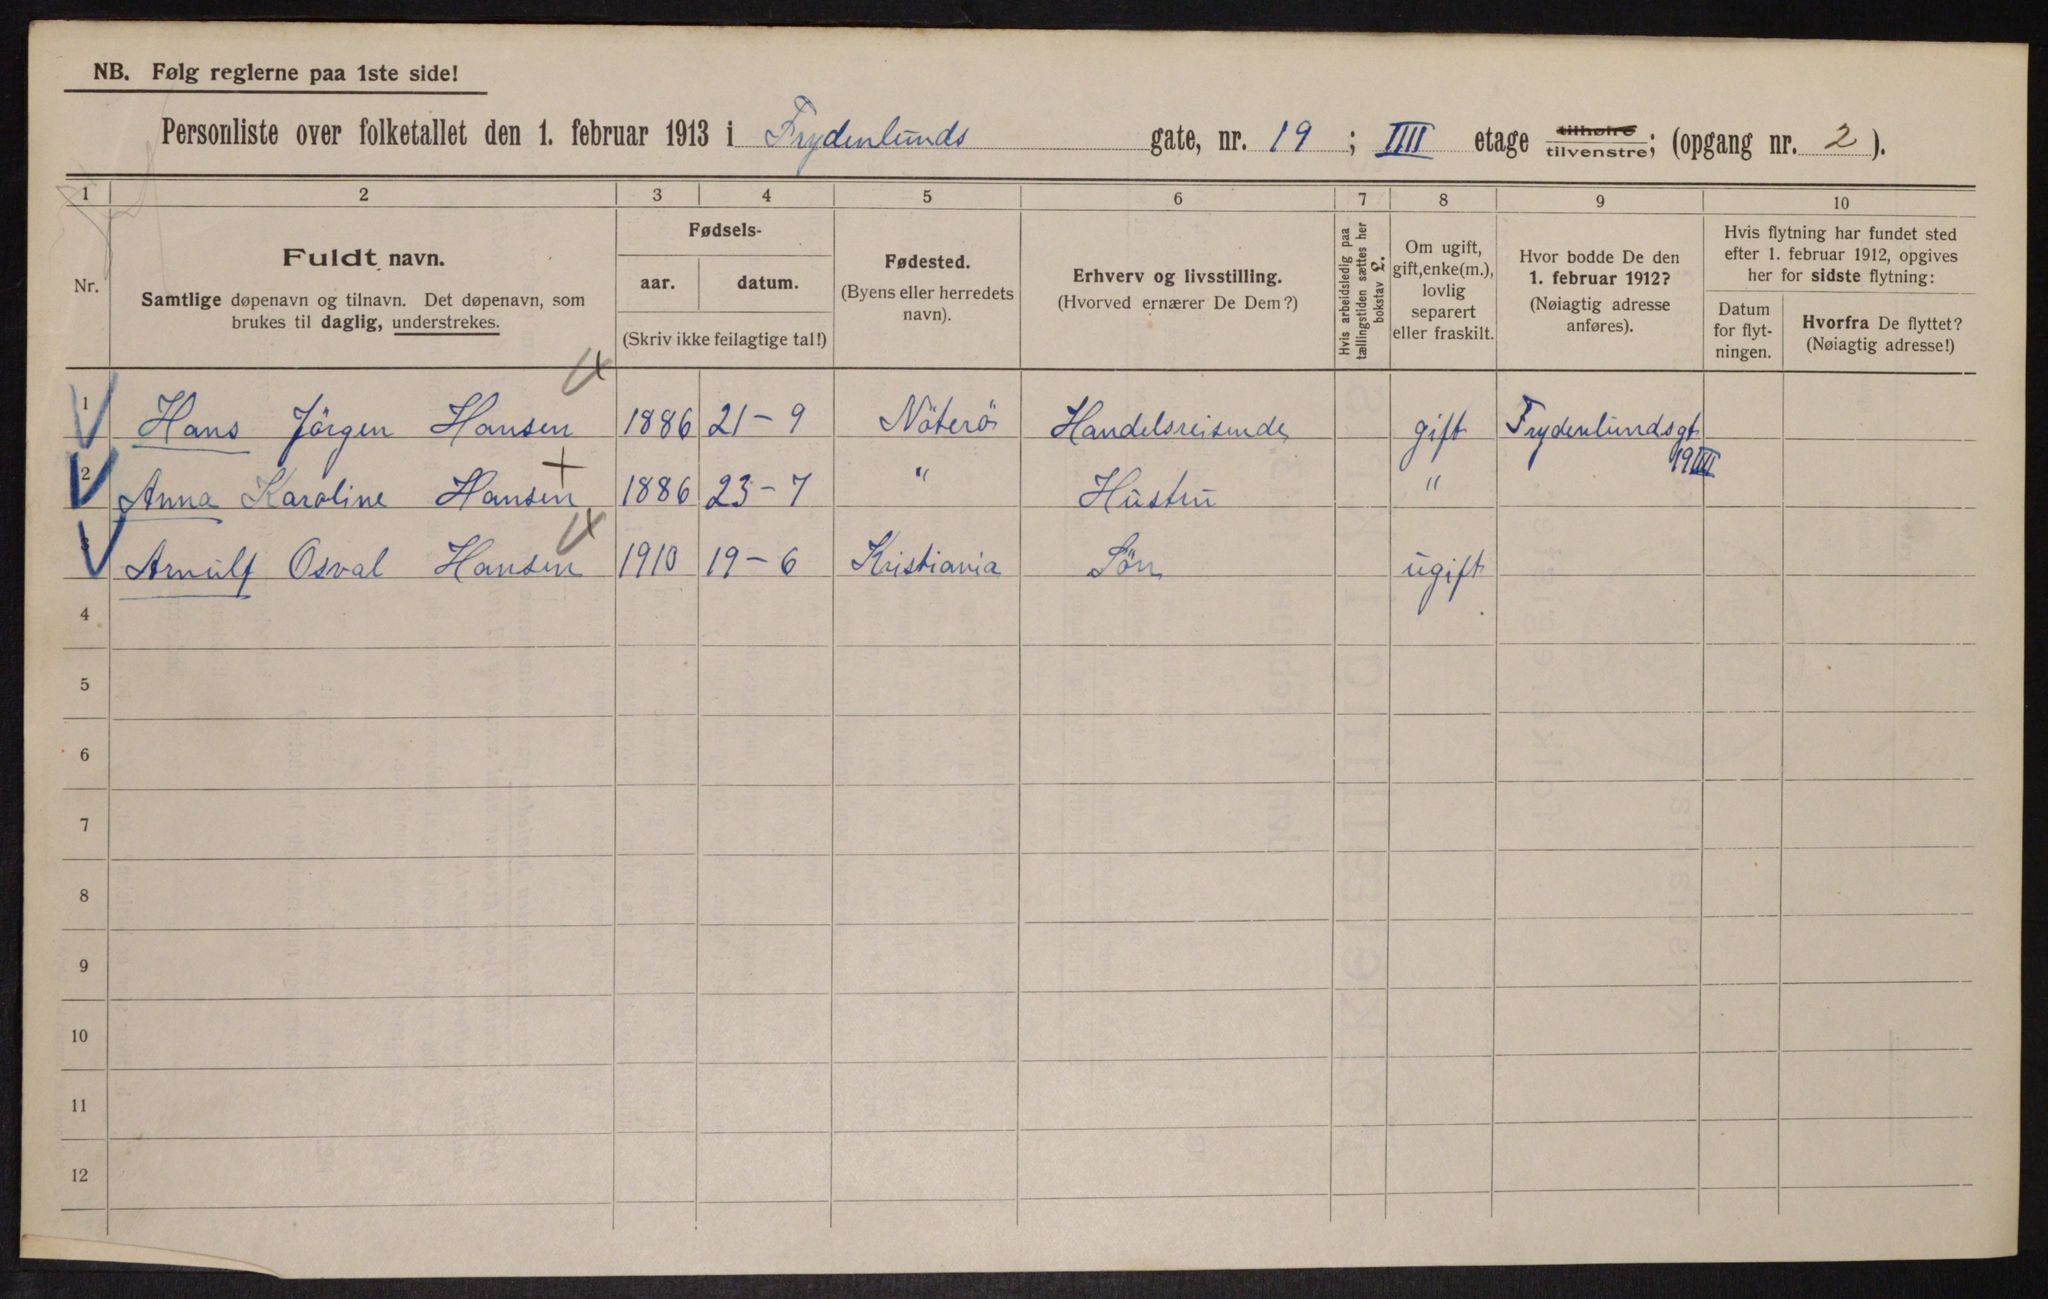 NB. Følg reglerne paa 1ste side!
Personliste over folketallet den 1. februar 1913 i Frydenlunds gate, nr. 19 ; IIII etage tilhøire tilvenstre; (opgang nr. 2).
1 2 3 4 5 6 7 8 9 10
Nr.
Fuldt navn.
Samtlige døpenavn og tilnavn. Det døpenavn, som
brukes til daglig, understrekes.
Fødsels-
aar. datum.
(Skriv ikke feilagtige tal!)
Fødested.
(Byens eller herredets
navn).
Erhverv og livsstilling.
(Hvorved ernærer De Dem?)
Hvis arbeidsledig paa
tællingstiden sættes her
bokstav L.
Om ugift,
gift, enke(m.),
lovlig
separert
eller fraskilt.
Hvor bodde De den
1. februar 1912?
(Nøiagtig adresse
anføres).
Hvis flytning har fundet sted
efter 1. februar 1912, opgives
her for sidste flytning:
Datum
for flyt-
ningen.
Hvorfra De flyttet?
(Nøiagtig adresse!)
1 Hans Jörgen Hansen 1886 21-9 Nöterö Handelsreisende gift Frydenlundsgt
19 IIII
2 Anna Karoline Hansen 1886 23-7 " Hustru "
3 Arnulf Osval Hansen 1910 19-6 Kristiania Sön ugift
4
5
6
7
8
9
10
11
12